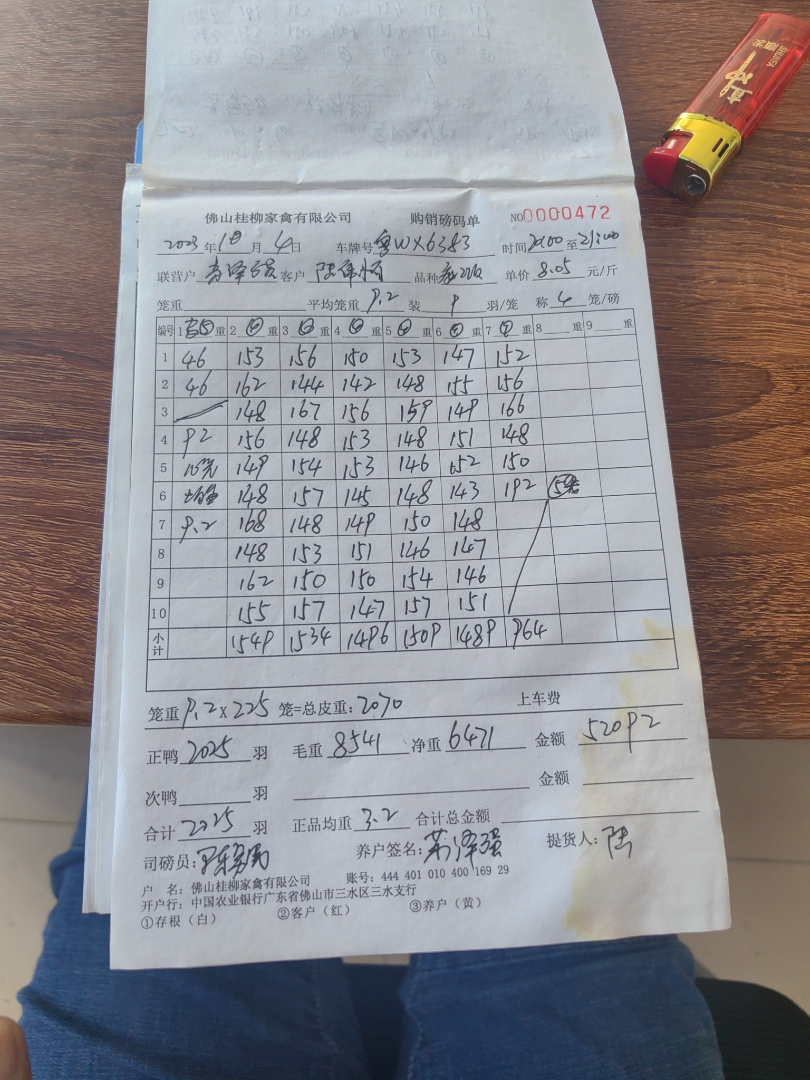 佛山桂柳家禽有限公司 购销磅码单 NO0000472
2023年10月4日 车牌号粤WX6383 时间 至21:00
联营户 客户 品种 单价8.05元/斤
笼重 平均笼重9.2 装9羽/笼 称4笼/磅
编号 1 重 2 ④ 重 3 ④ 重 4 ④ 重 5 ④ 重 6 ④ 重 7 ④ 重 8 重 9 重
1 46 153 156 150 153 147 152
2 46 162 144 142 148 155 156
3 148 167 156 159 149 166
4 92 156 148 153 148 151 148
5 10笼 149 154 153 146 152 150
6 148 157 145 148 143 192
7 9.2 168 148 149 150 148
8 148 153 151 146 147
9 162 150 150 154 146
10 155 157 147 157 151
小计 1549 1534 1496 1509 1489 964
笼重9.2×225笼=总皮重:2070 上车费
正鸭2025羽 毛重8541 净重6471 金额52092
次鸭 羽 金额
合计2025羽 正品均重3.2 合计总金额
司磅员: 养户签名: 泽强 提货人:陆
户 名:佛山桂柳家禽有限公司 账号:444 401 010 400 169 29
开户行:中国农业银行广东省佛山市三水区三水支行
①存根(白) ②客户(红) ③养户(黄)